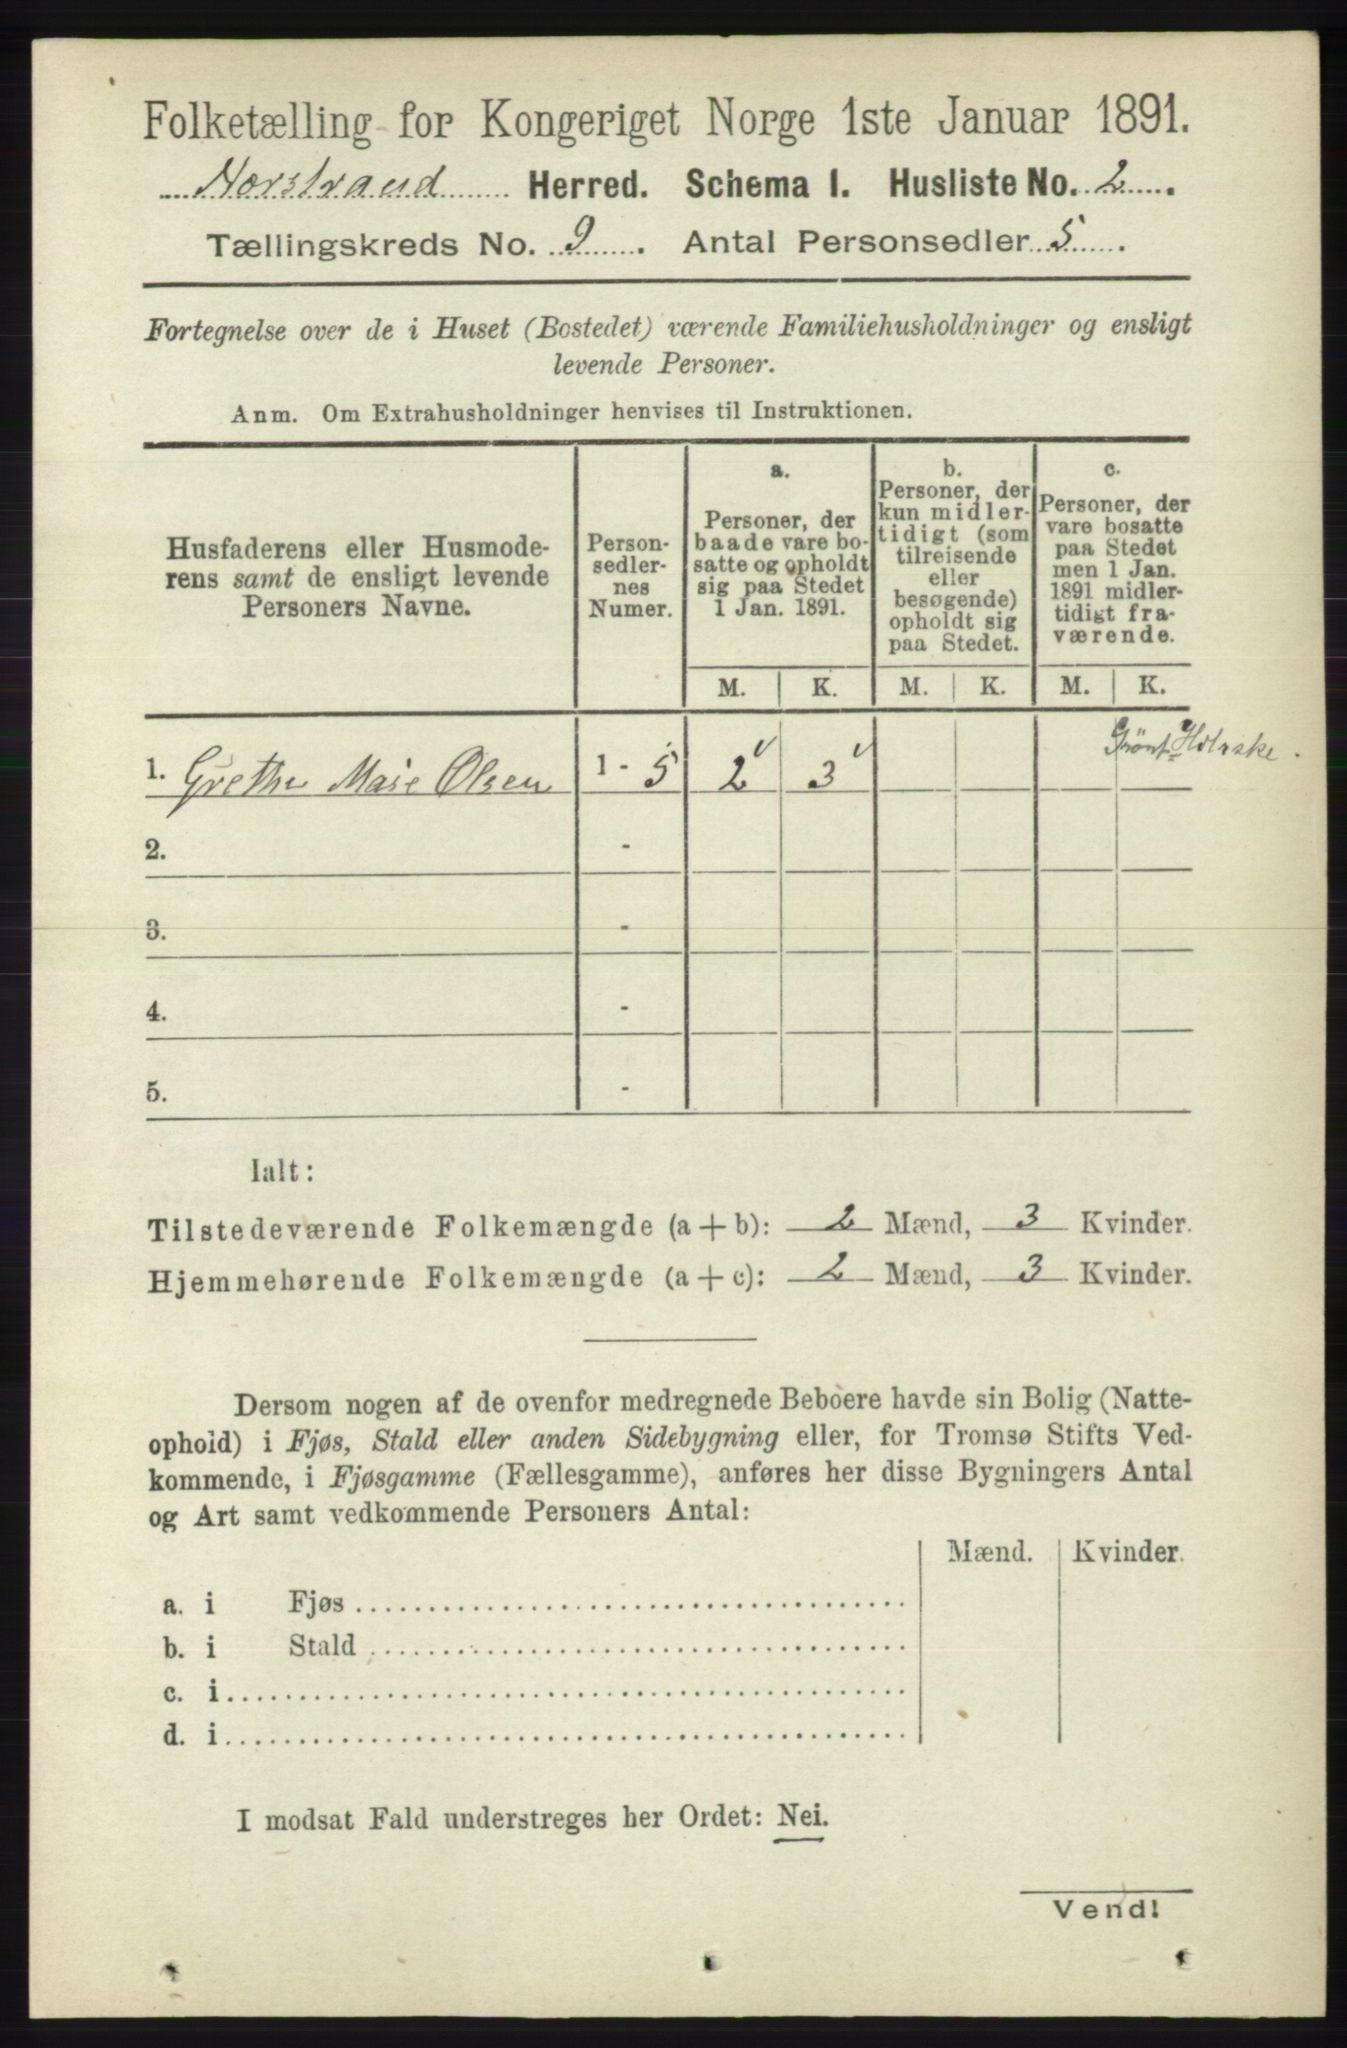 Folketælling for Kongeriget Norge 1ste Januar 1891.
Nærstrand Herred. Schema I. Husliste No. 2.
Tællingskreds No. 9. Antal Personsedler 5.
Fortegnelse over de i Huset (Bostedet) værende Familiehusholdninger og ensligt
levende Personer.
Anm. Om Extrahusholdninger henvises til Instruktionen.
Husfaderens eller Husmode-
rens samt de ensligt levende
Personers Navne.
Person-
sedler-
nes
Numer.
a.
Personer, der
baade vare bo-
satte og opholdt
sig paa Stedet
1 Jan. 1891.
b.
Personer, der
kun midler-
tidigt (som
tilreisende
eller
besøgende)
opholdt sig
paa Stedet.
c.
Personer, der
vare bosatte
paa Stedet
men 1 Jan.
1891 midler-
tidigt fra-
værende.
M. K. M. K. M. K.
1. Grethe Marie Olsen 1 - 5 2 3
2. -
3. -
4. -
5. -
Ialt:
Tilstedeværende Folkemængde (a + b): 2 Mænd, 3 Kvinder.
Hjemmehørende Folkemængde (a + c): 2 Mænd, 3 Kvinder.
Dersom nogen af de ovenfor medregnede Beboere havde sin Bolig (Natte-
ophold) i Fjøs, Stald eller anden Sidebygning eller, for Tromsø Stifts Ved-
kommende, i Fjøsgamme (Fællesgamme), anføres her disse Bygningers Antal
og Art samt vedkommende Personers Antal:
Mænd. Kvinder.
a. i Fjøs
b. i Stald
c. i
d. i
I modsat Fald understreges her Ordet: Nei.
Vend!